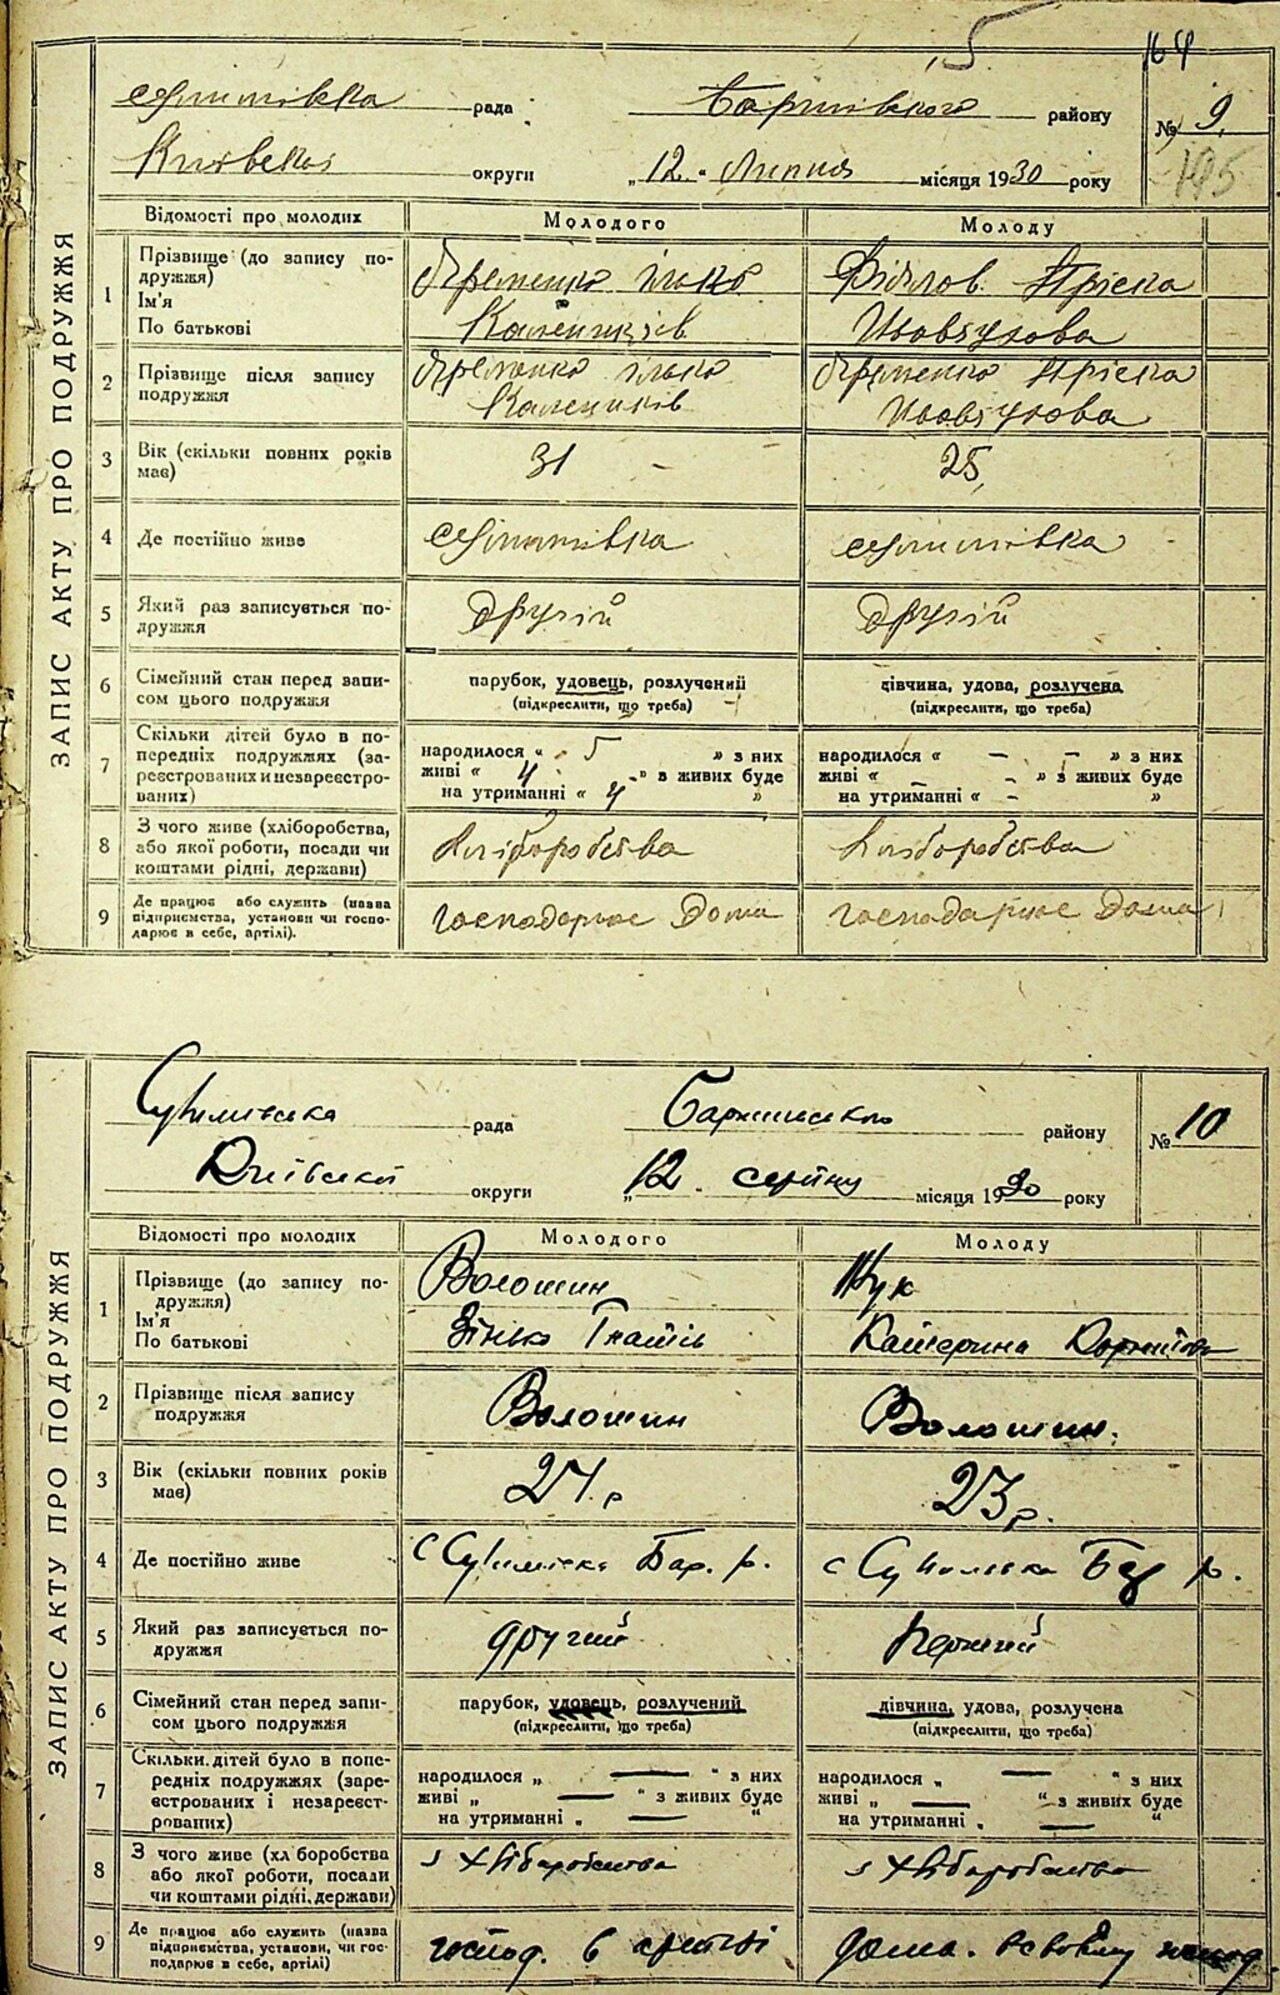 5 164
рада Баришівського району № 9
Київської округи „ 12 “ Липня місяця 1930 року 195
ЗАПИС АКТУ ПРО ПОДРУЖЖЯ
Відомості про молодих Молодого Молоду
1 Прізвище (до запису по-
дружжя)
Ім'я
По батькові
Яременко Ілько
Каленіків
Пріська
2 Прізвище після запису
подружжя
Яременко Ілько
Каленіків
Яременко Пріська
3 Вік (скільки повних років
має)
31 25
4 Де постійно живе
5 Який раз записується по-
дружжя
Другій Другій
6 Сімейний стан перед запи-
сом цього подружжя
парубок, удовець, розлучений
(підкреслити, що треба)
дівчина, удова, розлучена
(підкреслити, що треба)
7 Скільки дітей було в по-
передніх подружжях (за-
реєстрованих и незареєстро-
ваних)
народилося « 5 » з них
живі « 4 » з живих буде
на утриманні « 4 »
народилося « — — » з них
живі « — - » з живих буде
на утриманні « - »
8 З чого живе (хліборобства,
або якої роботи, посади чи
коштами рідні, держави)
Хліборобства Хліборобства
9 Де працює або служить (назва
підприємства, установи чи госпо-
дарює в себе, артілі).
господарює дома господарює дома
Сулимівська рада Баришівського району № 10
Київської округи „ 12 серпня місяця 1930 року
ЗАПИС АКТУ ПРО ПОДРУЖЖЯ
Відомості про молодих Молодого Молоду
1 Прізвище (до запису по-
дружжя)
Ім'я
По батькові
Волошин
Зінько Гнатів
Жук
Катерина
2 Прізвище після запису
подружжя
Волошин Волошин.
3 Вік (скільки повних років
має)
27 р 23 р.
4 Де постійно живе
с Сулимівка Бар. р. с Сулимівка Бар р.
5 Який раз записується по-
дружжя
другий перший
6 Сімейний стан перед запи-
сом цього подружжя
парубок, удовець, розлучений
(підкреслити, що треба)
дівчина, удова, розлучена
(підкреслити, що треба)
7 Скільки дітей було в попе-
редніх подружжях (заре-
єстрованих і незареєст-
рованих)
народилося „ — “ з них
живі „ — “ з живих буде
на утриманні „ — “
народилося „ — “ з них
живі „ — “ з живих буде
на утриманні „ — “
8 З чого живе (хл боробства
або якої роботи, посади
чи коштами рідні, держави)
з хліборобства з хліборобства
9 Де працює або служить (назва
підприємства, установи, чи гос-
подарює в себе, артілі)
господ. в артілі дома. в своїму